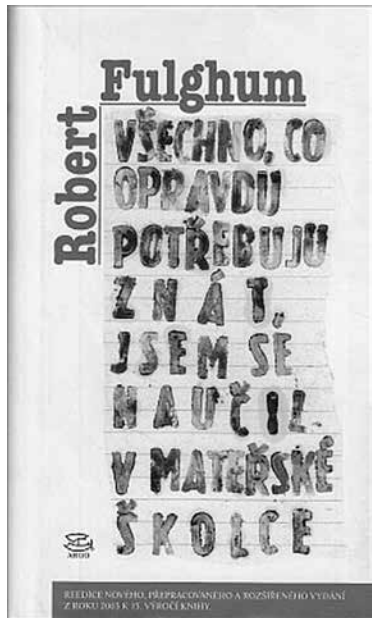 Robert
Fulghum
VŠECHNO, CO
OPRAVDU
POTŘEBUJU
ZNÁT,
JSEM SE
NAUČIL
V MATEŘSKÉ
ŠKOLCE
ARGO
REEDICE NOVÉHO, PŘEPRACOVANÉHO A ROZŠÍŘENÉHO VYDÁNÍ
Z ROKU 2003 K 15. VÝROČÍ KNIHY